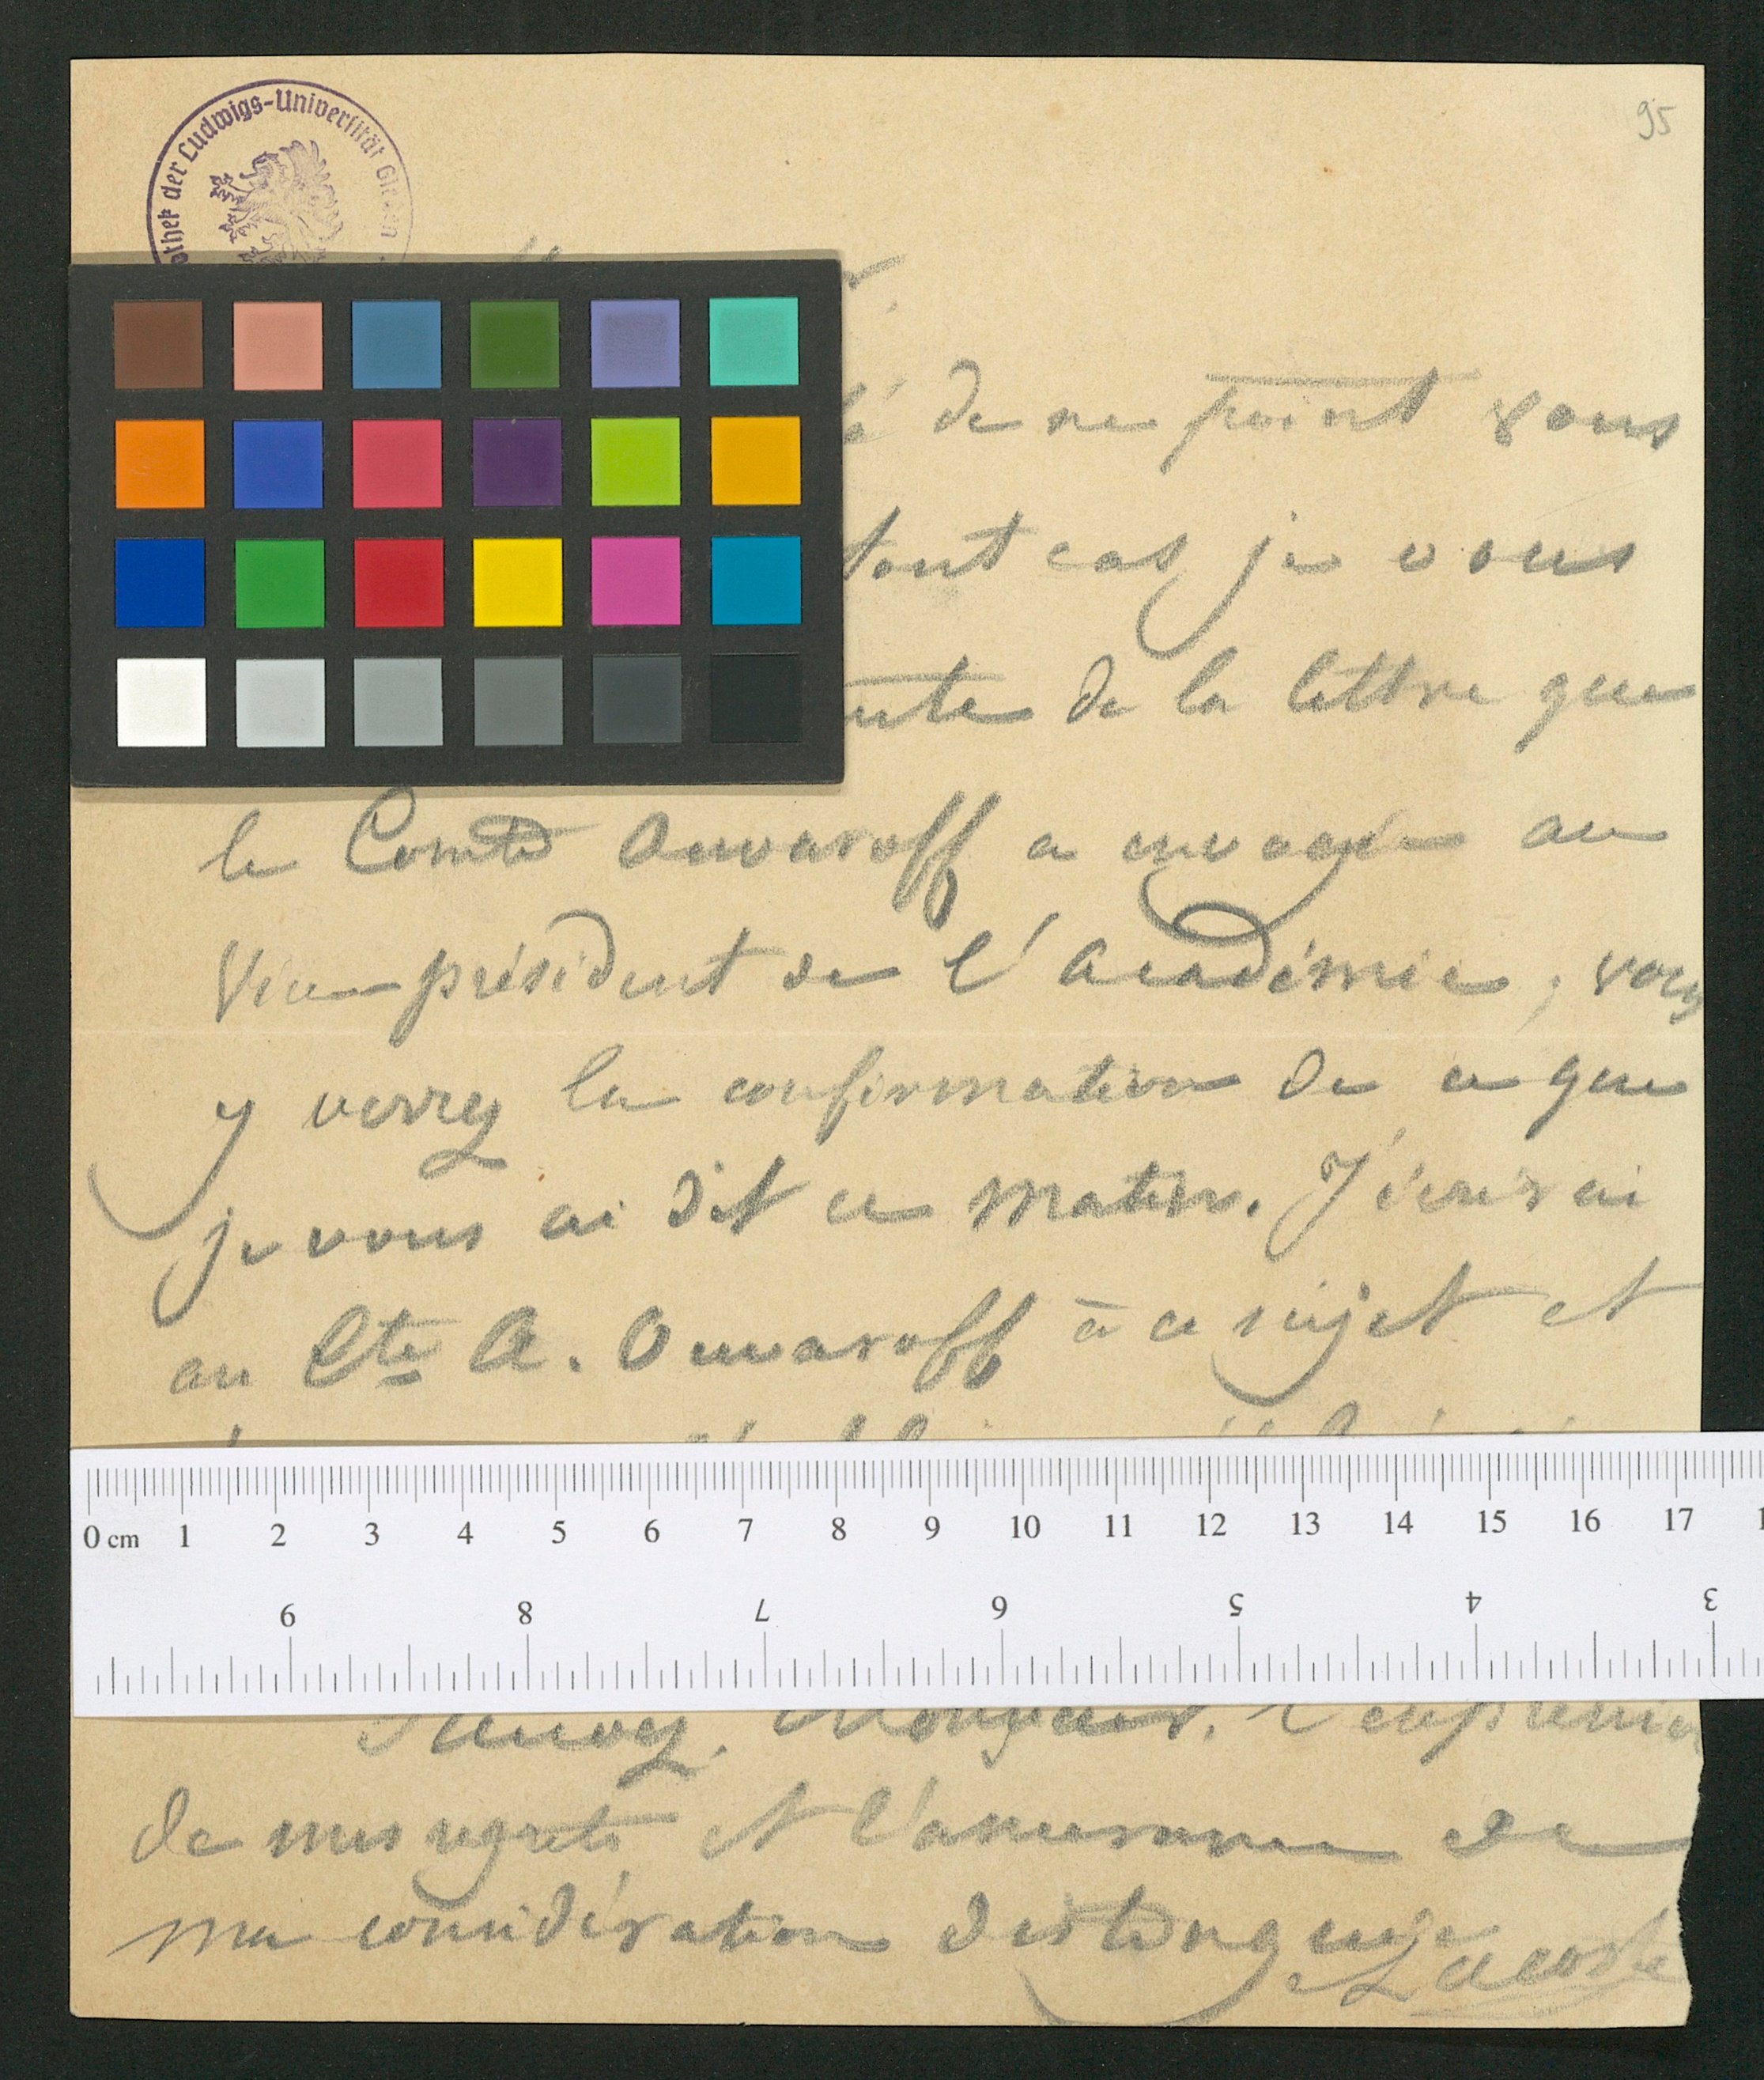 95
othek der Ludwigs-Universität Gießen
de ne point vous
tout cas je vous
de la lettre que
le Comte Ouvaroff a envoyée au
Vice-président de l'Académie, vous
y verrez la confirmation de ce que
je vous ai dit ce matin. J'écrirai
au Cte A. Ouvaroff à ce sujet et
0 cm 1 2 3 4 5 6 7 8 9 10 11 12 13 14 15 16 17
9 8 7 6 5 4 3
Monsieur, l'expression
de mes regrets et l'assurance de
ma considération distinguée
Lacoste